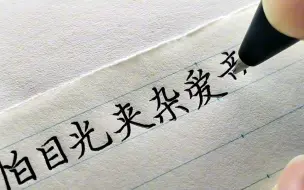 怕目光夹杂爱